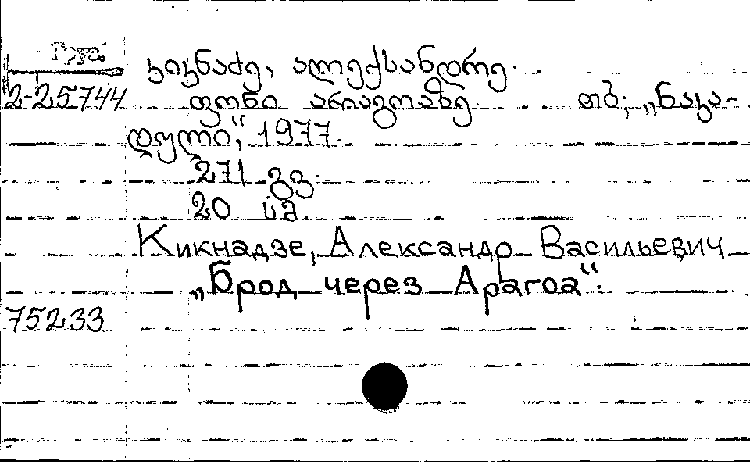 კიკნაძე, ალექსანდრე.
2-25744 ფონი არაგოაზე თბ; „ნაკა-
დული“, 1977.
271 გვ.
20 სმ
Кикнадзе, Александр Васильевич
„Брод через Арагоа“.
75233